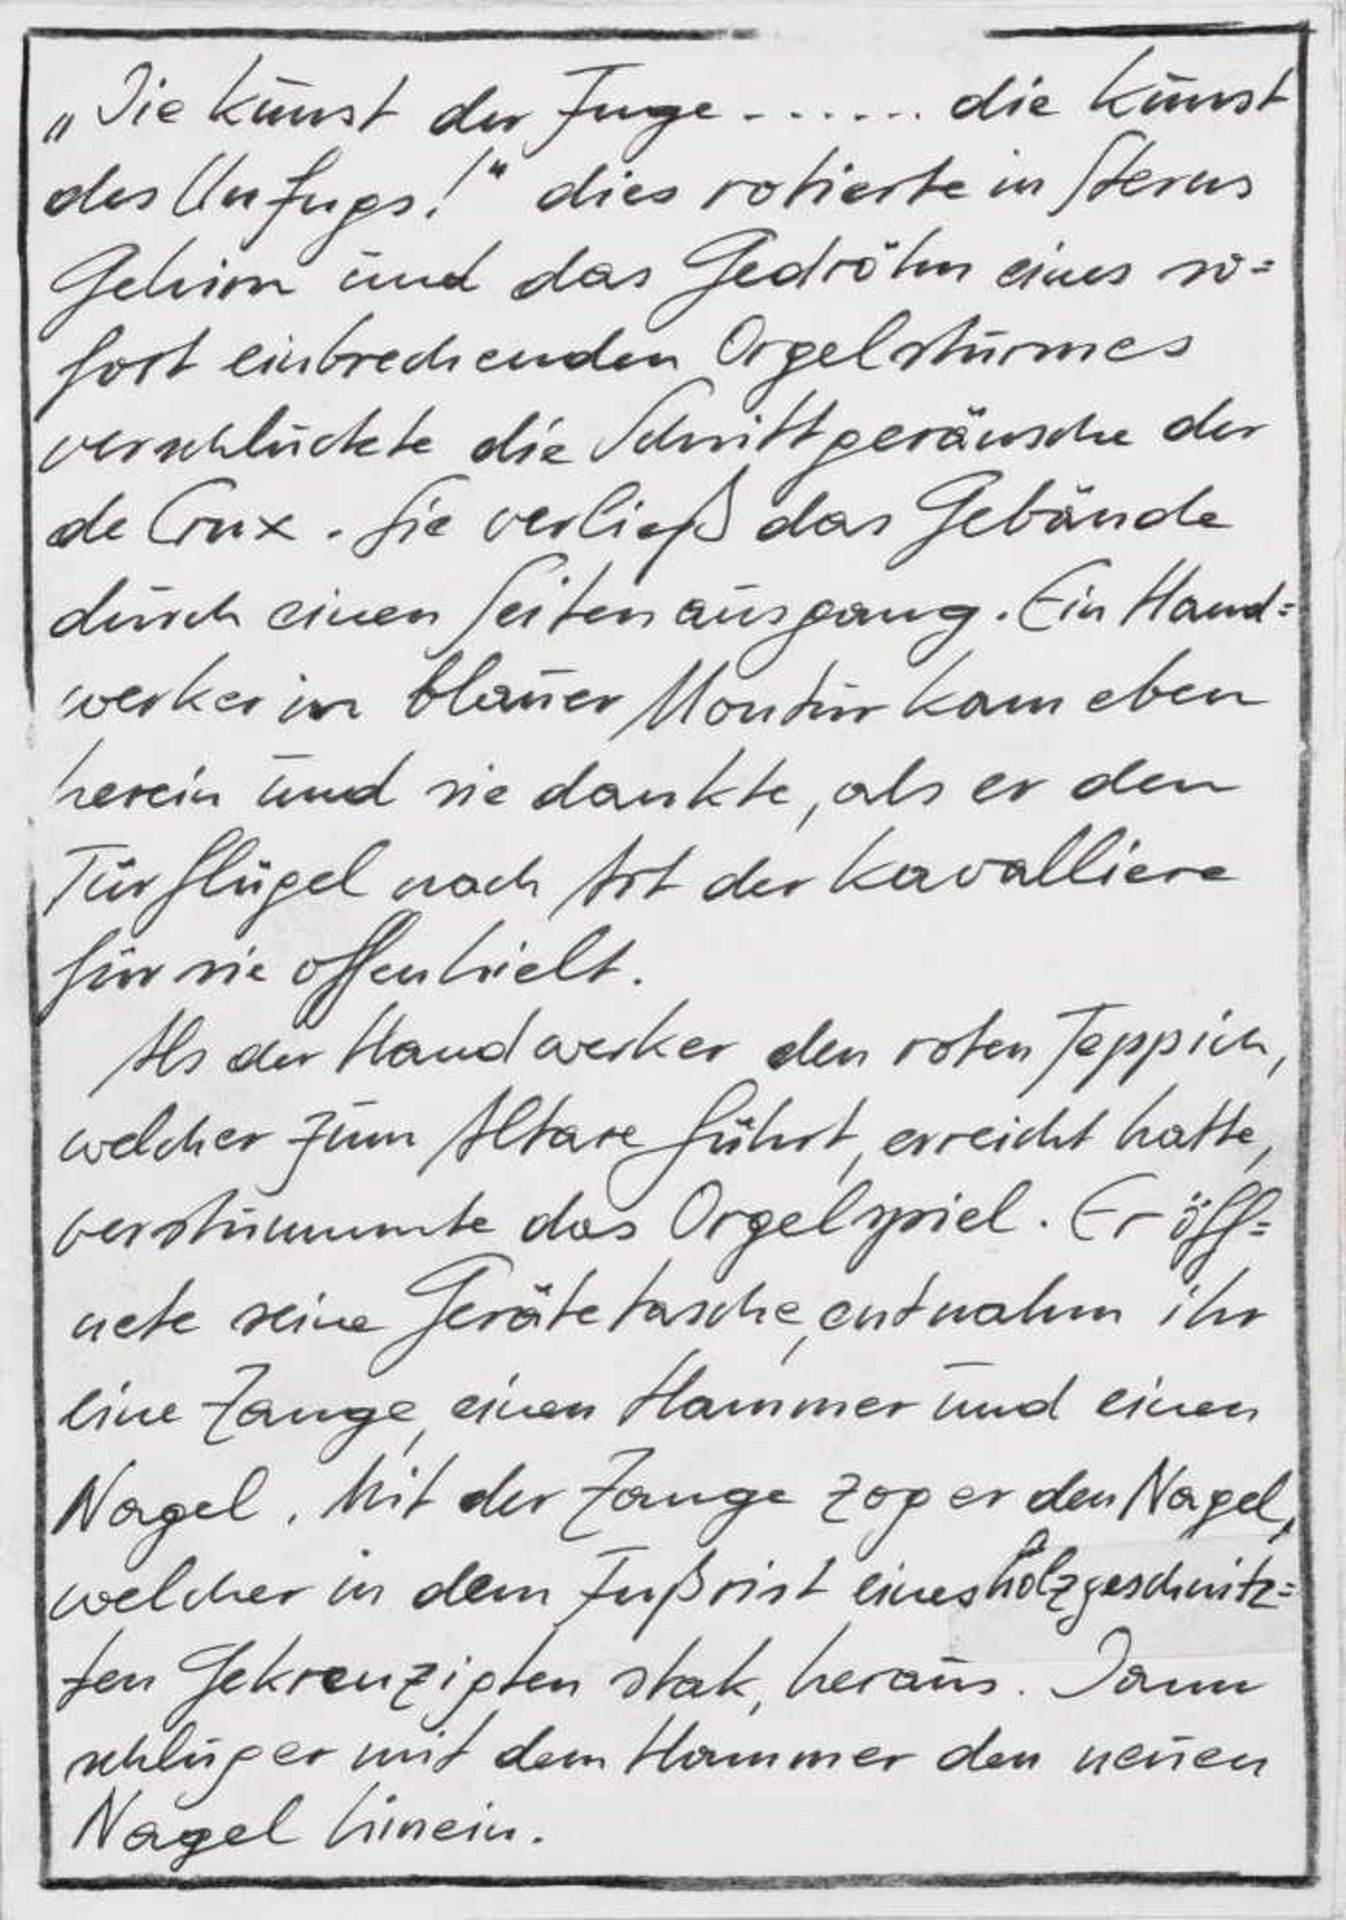 „Die Kunst der Fuge ....... die Kunst
des Unfugs!“ dies rotierte in Sterns
Gehirn und das Gedröhn eines so=
fort einbrechenden Orgelsturmes
verschluckte die Schrittgeräusche der
de Crux. Sie verließ das Gebäude
durch einen Seitenausgang. Ein Hand=
werker in blauer Montur kam eben
herein und sie dankte, als er den
Türflügel nach Art der Kavalliere
für sie offenhielt.
Als der Handwerker den roten Teppich,
welcher zum Altare führt, erreicht hatte,
verstummte das Orgelspiel. Er öff=
nete seine Gerätetasche, entnahm ihr
eine Zange, einen Hammer und einen
Nagel. Mit der Zange zog er den Nagel,
welcher in dem Fußrist eines holzgeschnitz=
ten Gekreuzigten stak, heraus. Dann
schlug er mit dem Hammer den neuen
Nagel hinein.